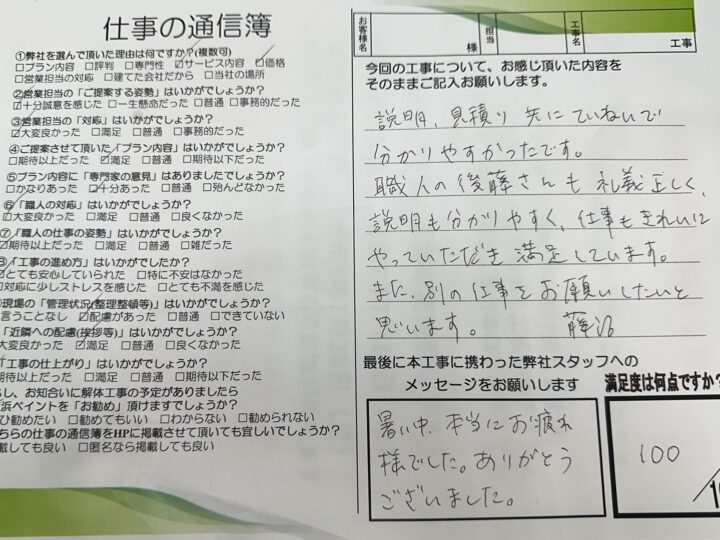 仕事の通信簿
①弊社を選んで頂いた理由は何ですか?(複数可)
□プラン内容 □評判 □専門性 ☑サービス内容 ☑価格
□営業担当の対応 □建てた会社だから □当社の場所
②営業担当の「ご提案する姿勢」はいかがでしょうか?
☑十分誠意を感じた □一生懸命だった □普通 □事務的だった
③営業担当の「対応」はいかがでしょうか?
☑大変良かった □満足 □普通 □事務的だった
④ご提案させて頂いた「プラン内容」はいかがでしょうか?
□期待以上だった ☑満足 □普通 □期待以下だった
⑤プラン内容に「専門家の意見」はありましたでしょうか?
□かなりあった ☑十分あった □普通 □殆んどなかった
⑥「職人の対応」はいかがでしょうか?
☑大変良かった □満足 □普通 □良くなかった
⑦「職人の仕事の姿勢」はいかがでしょうか?
☑期待以上だった □満足 □普通 □雑だった
⑧「工事の進め方」はいかがでしたか?
☑とても安心していられた □特に不安はなかった
□対応に少しストレスを感じた □とても不満を感じた
現場の「管理状況(整理整頓等)」はいかがでしょうか?
言うことなし ☑配慮があった □普通 □できていない
「近隣への配慮(挨拶等)」はいかがでしょうか?
大変良かった ☑満足 □普通 □良くなかった
「工事の仕上がり」はいかがでしょうか?
期待以上だった □満足 □普通 □期待以下だった
し、お知合いに解体工事の予定がありましたら
浜ペイントを「お勧め」頂けますでしょうか?
ひ勧めたい □勧めてもいい □わからない □勧められない
ちらの仕事の通信簿をHPに掲載させて頂いても宜しいでしょうか?
載しても良い □匿名なら掲載しても良い
お客様名 様 担当 工事名 工事
今回の工事について、お感じ頂いた内容を
そのままご記入お願いします。
説明、見積り 共に ていねいで
分かりやすかったです。
職人の後藤さんも 礼義正しく、
説明も分かりやすく、仕事もきれいに
やっていただき 満足しています。
また、別の仕事をお願いしたいと
思います。 藤沼
最後に本工事に携わった弊社スタッフへの
メッセージをお願いします
暑い中、本当にお疲れ
様でした。ありがとう
ございました。
満足度は何点ですか?
100